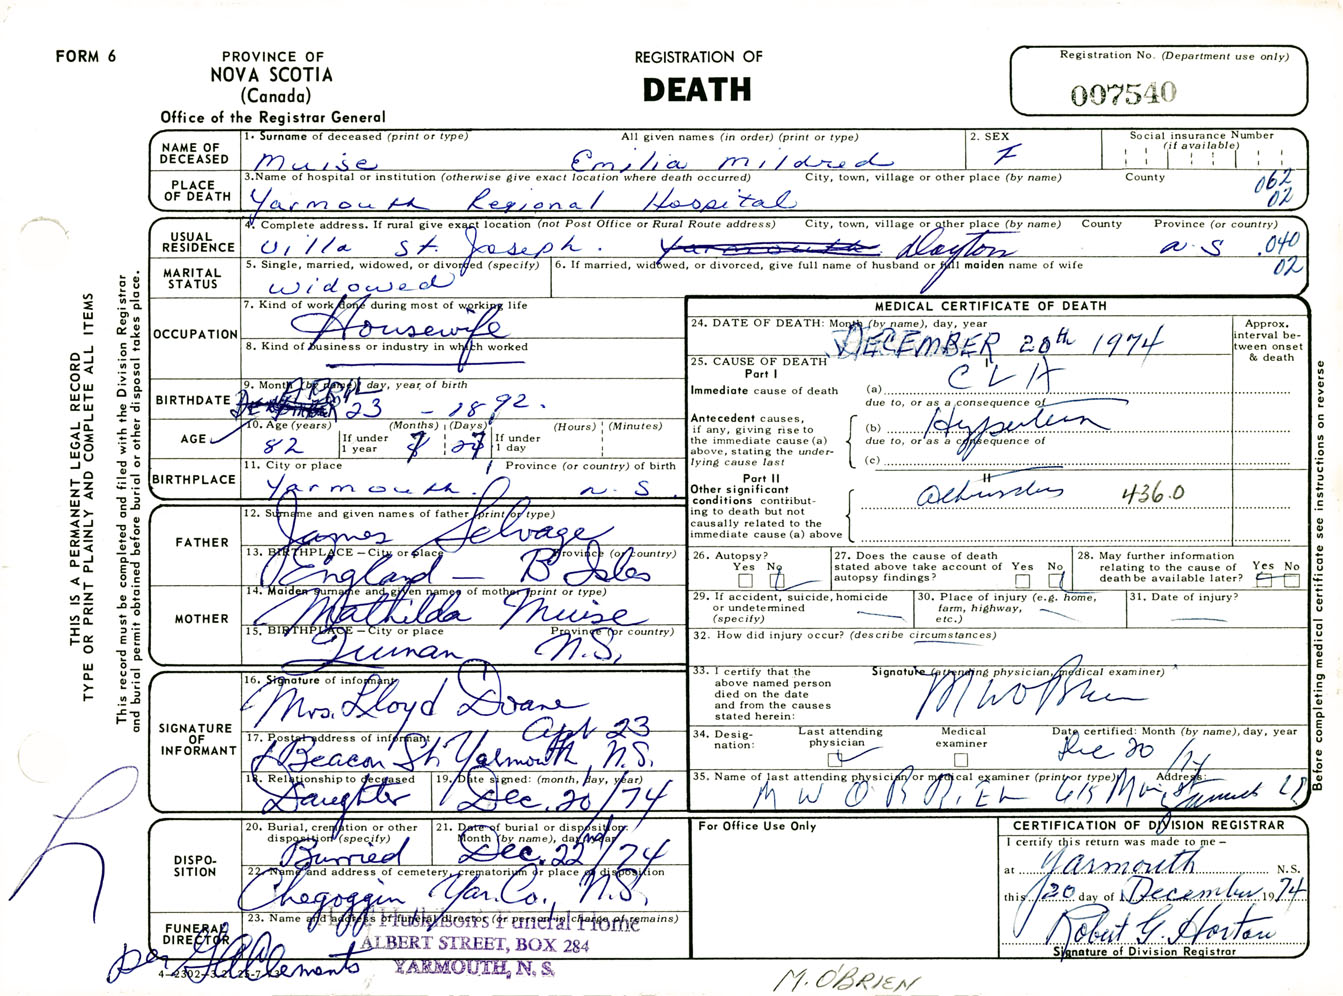 FORM 6
PROVINCE OF
NOVA SCOTIA
(Canada)
Office of the Registrar General
REGISTRATION OF
DEATH
Registration No. (Department use only)
007540
THIS IS A PERMANENT LEGAL RECORD
TYPE OR PRINT PLAINLY AND COMPLETE ALL ITEMS
This record must be completed and filed with the Division Registrar
and burial permit obtained before burial or other disposal takes place.
NAME OF DECEASED
1. Surname of deceased (print or type) All given names (in order) (print or type)
Muise Emilia Mildred
2. SEX
F
Social insurance Number
(if available)
PLACE OF DEATH
3. Name of hospital or institution (otherwise give exact location where death occurred) City, town, village or other place (by name) County
Yarmouth Regional Hospital
062
02
USUAL RESIDENCE
4. Complete address. If rural give exact location (not Post Office or Rural Route address) City, town, village or other place (by name) County Province (or country)
Villa St. Joseph. Yarmouth Dayton N.S
040
02
MARITAL STATUS
5. Single, married, widowed, or divorced (specify)
widowed
6. If married, widowed, or divorced, give full name of husband or full maiden name of wife
OCCUPATION
7. Kind of work done during most of working life
Housewife
8. Kind of business or industry in which worked
BIRTHDATE
9. Month (by name), day, year of birth
APRIL
23 - 1892.
AGE
10. Age (years) (Months) (Days) (Hours) (Minutes)
82 If under 1 year 7 27 If under 1 day
BIRTHPLACE
11. City or place Province (or country) of birth
Yarmouth. N.S.
FATHER
12. Surname and given names of father (print or type)
James Selvage
13. BIRTHPLACE — City or place Province (or country)
England — B Isles
MOTHER
14. Maiden Surname and given names of mother (print or type)
Mathilda Muise
15. BIRTHPLACE — City or place Province (or country)
N.S.
SIGNATURE OF INFORMANT
16. Signature of informant
Mrs. Lloyd Doane
Apt 23
17. Postal address of informant
Beacon St. Yarmouth, N.S.
18. Relationship to deceased
Daughter
19. Date signed: (month, day, year)
Dec. 20/74
DISPOSITION
20. Burial, cremation or other disposition (specify)
Burried
21. Date of burial or disposition: Month (by name), day, year
Dec. 22nd/74
22. Name and address of cemetery, crematorium or place of disposition
Chegoggin Yar. Co., N.S.
FUNERAL DIRECTOR
23. Name and address of funeral director (or person in charge of remains)
Funeral Home
ALBERT STREET, BOX 284
YARMOUTH, N. S.
per Clements
MEDICAL CERTIFICATE OF DEATH
24. DATE OF DEATH: Month (by name), day, year
DECEMBER 20th 1974
Approx. interval between onset & death
25. CAUSE OF DEATH
Part I
Immediate cause of death (a)
due to, or as a consequence of
Antecedent causes, if any, giving rise to the immediate cause (a) above, stating the underlying cause last
(b)
due to, or as a consequence of
(c)
Part II
Other significant conditions contributing to death but not causally related to the immediate cause (a) above
436.0
26. Autopsy?
Yes No
27. Does the cause of death stated above take account of autopsy findings?
Yes No
28. May further information relating to the cause of death be available later?
Yes No
29. If accident, suicide, homicide or undetermined (specify)
30. Place of injury (e.g. home, farm, highway, etc.)
31. Date of injury?
32. How did injury occur? (describe circumstances)
33. I certify that the above named person died on the date and from the causes stated herein:
Signature (attending physician, medical examiner)
M W O'Brien
34. Designation:
Last attending physician
Medical examiner
Date certified: Month (by name), day, year
Dec 20 /74
35. Name of last attending physician or medical examiner (print or type) Address:
M W O BRIEN 615 Main St
Before completing medical certificate see instructions on reverse
For Office Use Only
CERTIFICATION OF DIVISION REGISTRAR
I certify this return was made to me —
at Yarmouth N.S.
this 20 day of December 1974
Robert G. Horton
Signature of Division Registrar
M. O'BRIEN